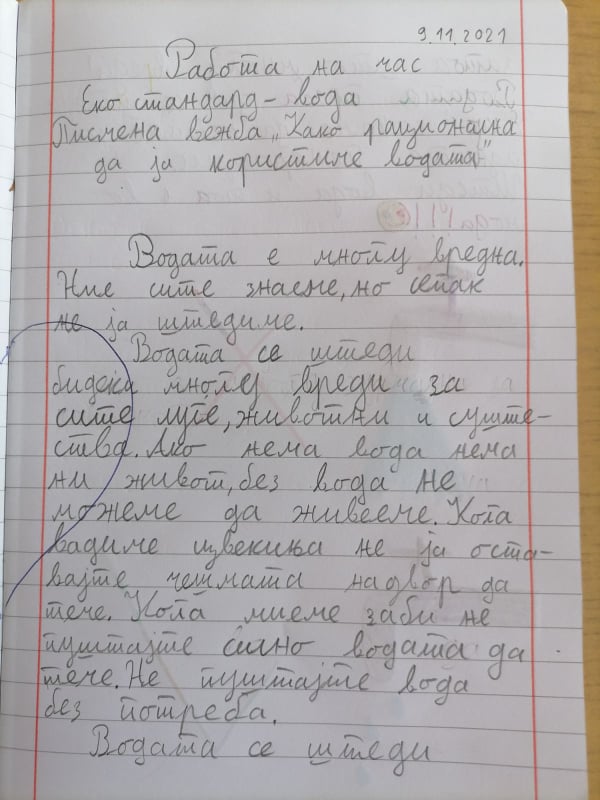 9.11.2021
Работа на час
Еко стандард - вода
Писмена вежба „Како рационална
да ја користиме водата"
Водата е многу вредна.
Ние сите знаеме, но сепак
не ја штедиме.
Водата се штеди
бидејќи многу вреди за
сите луѓе, животни и суште-
ства. Ако нема вода нема
ни живот, без вода не
можеме да живееме. Кога
вадиме цвекиња не ја оста-
вајте чешмата надвор да
тече. Кога миеме заби не
пуштајте силно водата да
тече. Не пуштајте вода
без потреба.
Водата се штеди